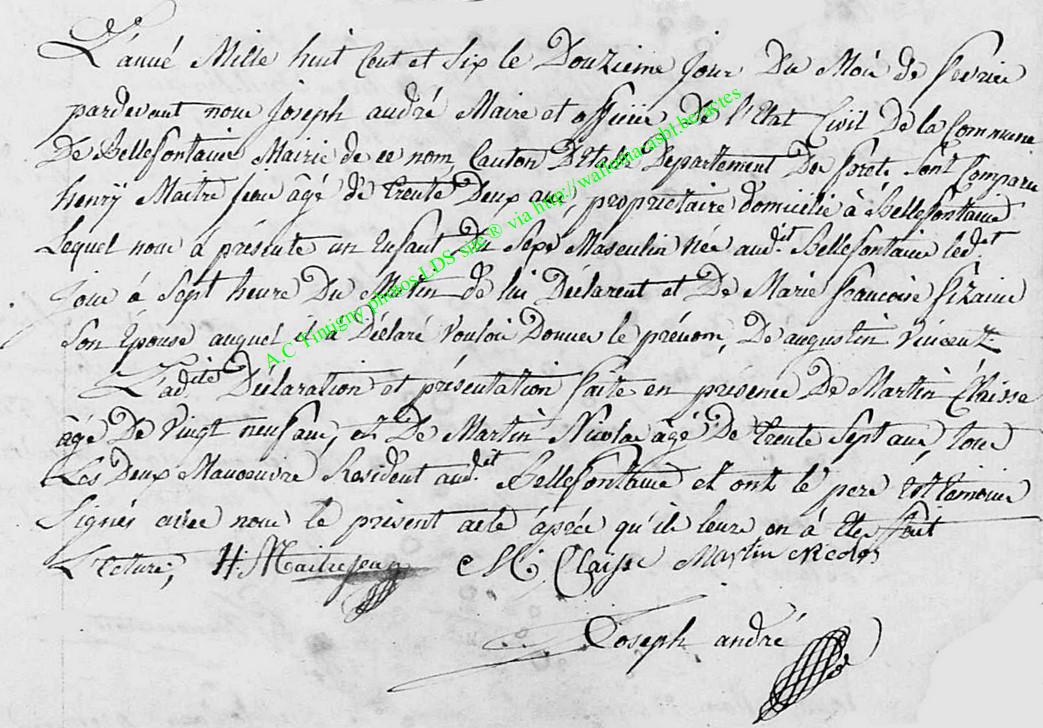 L'année Mille huit Cent et Six le Douzieme jour Du Moi de fevrier
pardevant nous Joseph andré Maire et officier De l'Etat Civil De la Commune
De Bellefontaine Mairie de ce nom, Canton D'Etale Departement De forêts Sont Comparu
henry Maitre jean âgé de trente Deux ans, proprietaire domicilié à Bellefontaine
Lequel nous à présenté un Enfant Du Sexe Masculin née aud.it Bellefontaine led.it
Jour à Sept heure Du Matin de lui Déclarent et De Marie francoise fizaine
Son Epouse auquel il à Déclaré Vouloir Donner le prénom, De augustin Vincent
L'ad.ite Déclaration et présentation faite en présence De Martin Claisse
âgé De Vingt neuf ans, et De Martin Nicolas âgé De trente Sept ans, tous
Les Deux Manoeuvre Resident aud.it Bellefontaine et ont le pere et témoins
Signés avec nous le présent acte après qu'ils leure on à été fait
Lecture, H: Maitrejean M: Claisse Martin Nicolas
Joseph andré
A.C Tintigny photos LDS-site ® via http://wallonia.asbl.be/actes